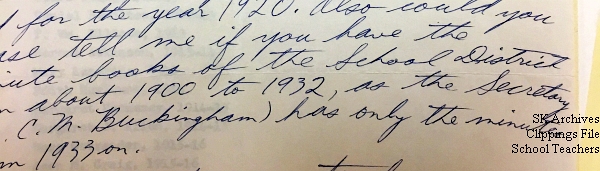 for the year 1920. Also could you
se tell me if you have the
ute books of the School District
about 1900 to 1932, as the Secretary
C. M. Buckingham) has only the minutes
m 1933 on.
SK Archives
Clippings File
School Teachers